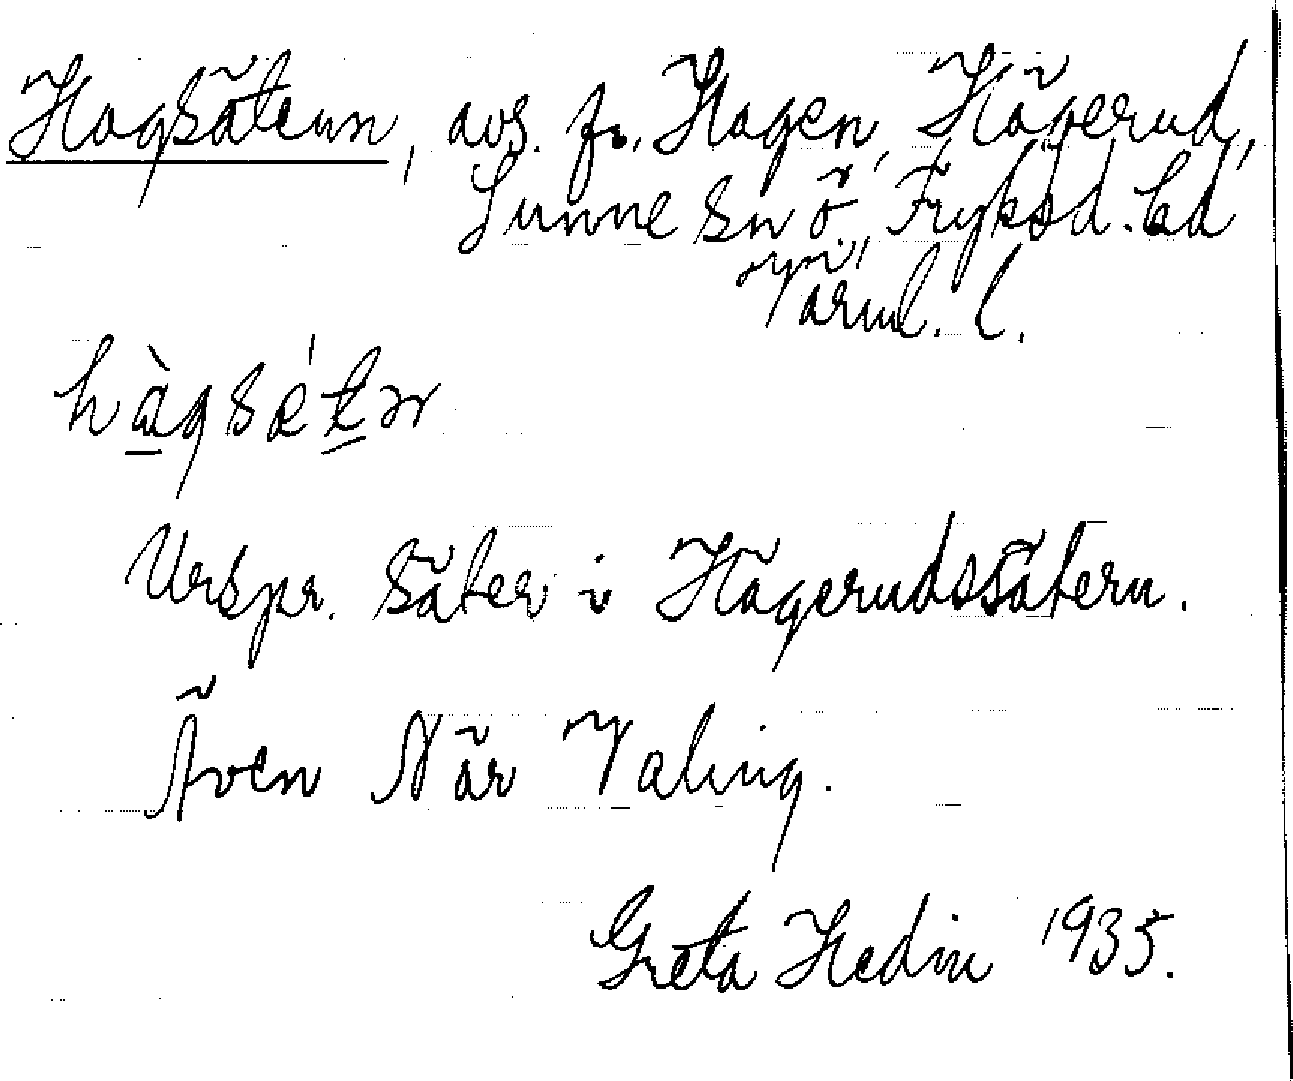 Hagsätern, avs. fr. Hagen, Hägerud,
Sunne sn Ö., Fryksd. hd
Värml. l.
hàgsétər
Urspr. säter i Hägerudssätern.
Även När Valing.
Greta Hedin 1935.